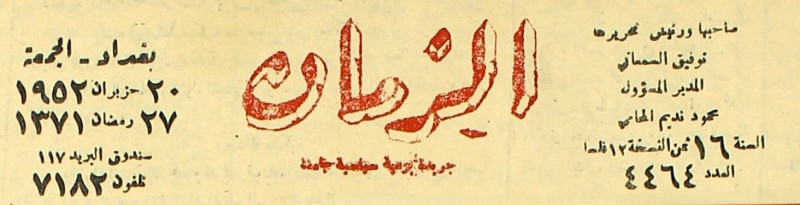 صاحبها ورئيس تحريرها
توفيق السمعاني
المدير المسؤول
محمود نديم المحامي
السنة ١٦ ثمن النسخة ١٢ فلسا
العدد ٤٤٦٤
الزمان
جريدة يومية سياسية جامعة
بغداد - الجمعة
٢٠ حزيران ١٩٥٢
٢٧ رمضان ١٣٧١
صندوق البريد ١١٧
تلفون ٧١٨٢